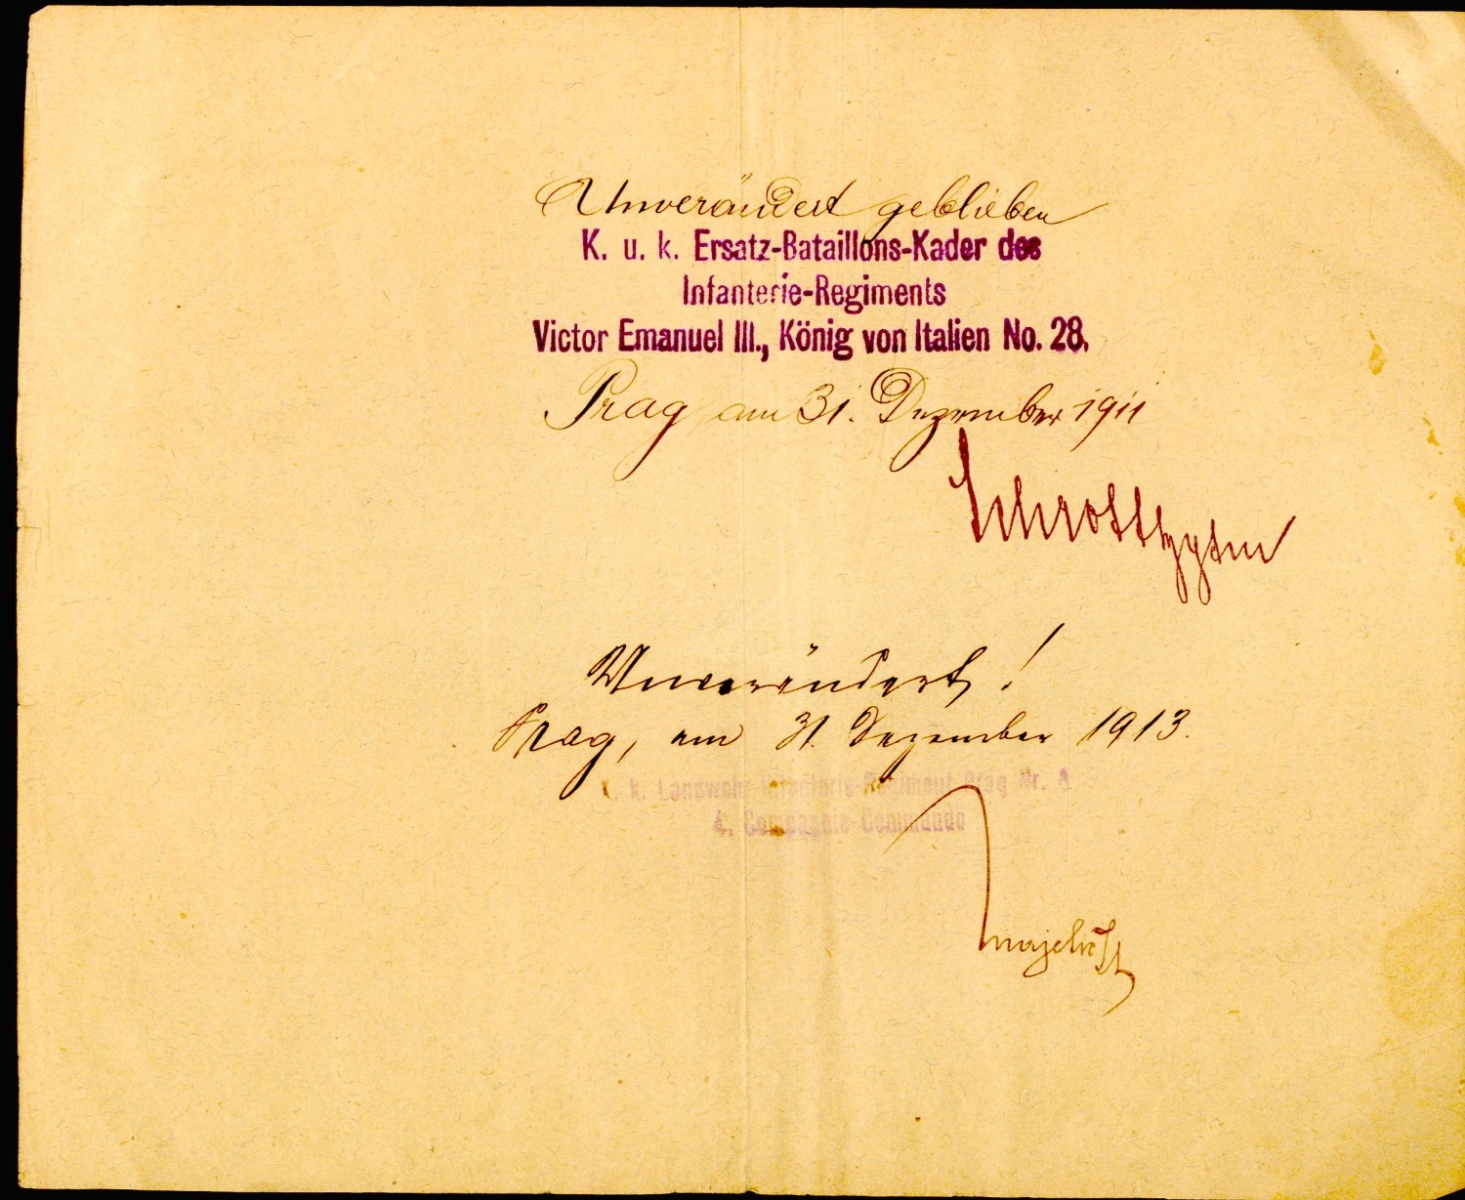 Unverändert geblieben
K. u. k. Ersatz-Bataillons-Kader des
Infanterie-Regiments
Victor Emanuel III., König von Italien No. 28.
Prag am 31. Dezember 1911
Schrott
Unverändert!
Prag, am 31. Dezember 1913.
k. k. Landwehr Infanterie-Regiment Prag Nr. 8
4. Compagnie-Commando